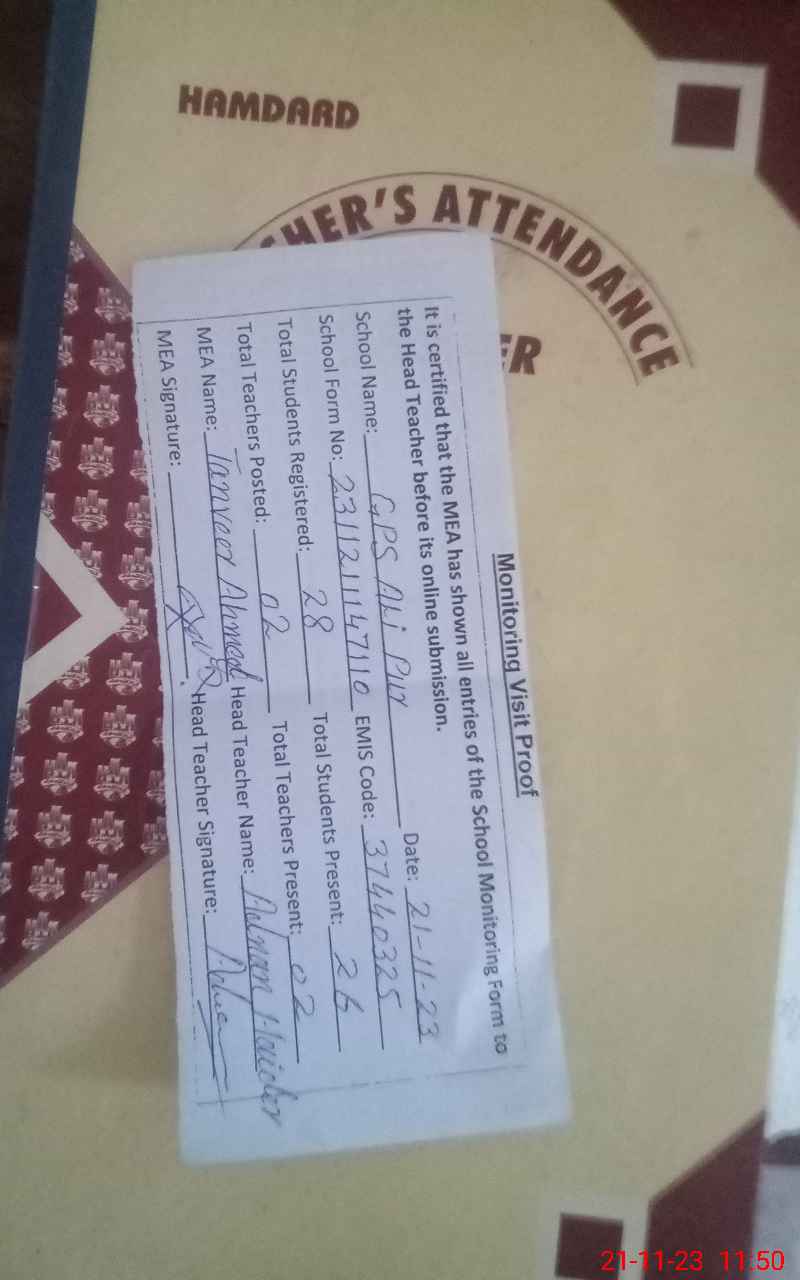 HAMDARD
HER'S ATTENDANCE
ER
Monitoring Visit Proof
It is certified that the MEA has shown all entries of the School Monitoring Form to
the Head Teacher before its online submission.
School Name: GPS Ali Pur Date: 21-11-23
School Form No: 2311211147110 EMIS Code: 37440325
Total Students Registered: 28 Total Students Present: 26
Total Teachers Posted: 02 Total Teachers Present: 02
MEA Name: Tanveer Ahmed Head Teacher Name: Adnan Haider
MEA Signature: Head Teacher Signature:
21-11-23 11:50